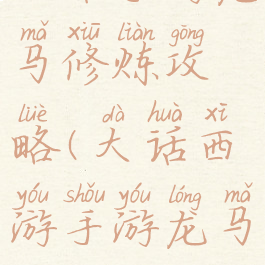 mǎ xiū liàn gōng
马修炼攻
lüè dà huà xī
略(大话西
yóu shǒu yóu lóng mǎ
游手游龙马